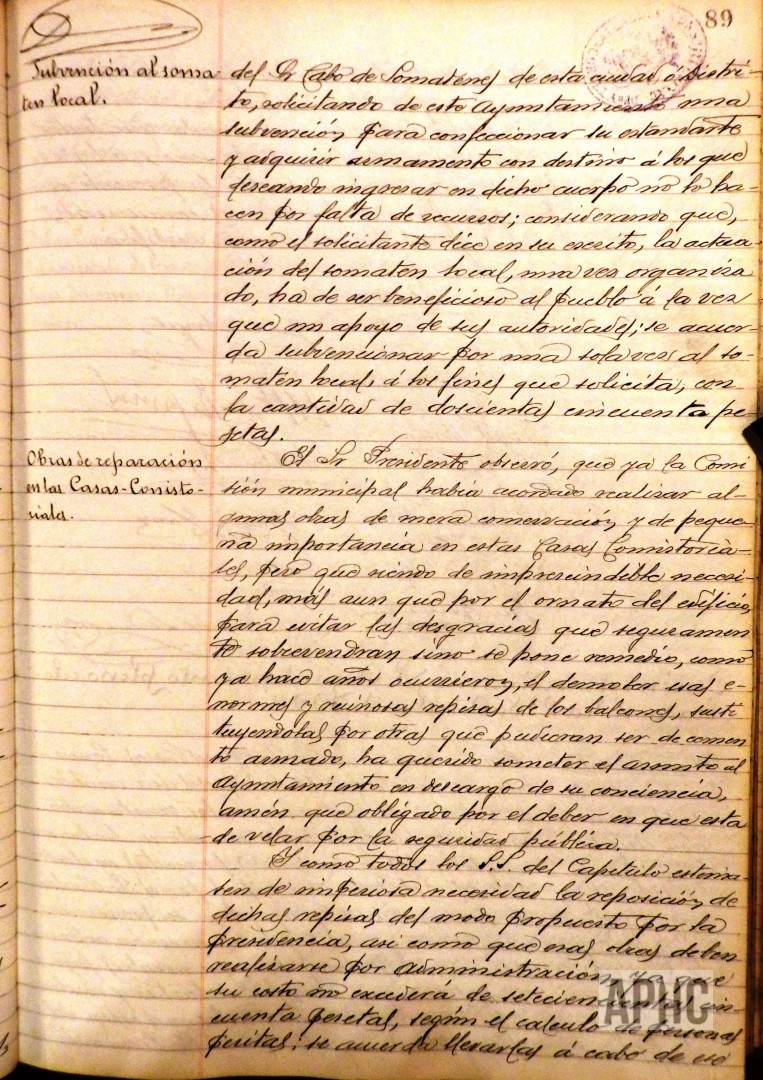 89
Subvención al soma-
ten local.
del Sr Cabo de Somatenes de esta ciudad ó Distri-
to, solicitando de este Ayuntamiento una
subvención para confeccionar su estandarte
y adquirir armamento con destino á los que
deseando ingresar en dicho cuerpo no lo ha-
cen por falta de recursos; considerando que,
como el solicitante dice en su escrito, la actua-
ción del somaten local, una vez organiza-
do, ha de ser beneficioso al pueblo á la vez
que un apoyo de sus autoridades; se acuer-
da subvencionar por una sola vez al so-
maten local, á los fines que solicita, con
la cantidad de doscientas cincuenta pe-
setas.
Obras de reparación
en las Casas-Consisto-
riales.
El Sr Presidente observó, que ya la Comi
sión municipal había acordado realizar al-
gunas obras de mera conservación y de peque-
ña importancia en estas Casas Consistoria-
les, pero que siendo de imprescindible necesi-
dad, más aun que por el ornato del edificio,
para evitar las desgracias que seguramen
te sobrevendran sino se pone remedio, como
ya hace años ocurrieron, el demoler esas e-
normes y ruinosas repisas de los balcones, susti
tuyendolas por otras que pudieran ser de cemen
to armado, ha querido someter el asunto al
Ayuntamiento en descargo de su conciencia,
amén que obligado por el deber en que esta
de velar por la seguridad pública.
Y como todos los S.S. del Capitulo estima-
sen de imperiosa necesidad la reposición de
dichas repisas del modo propuesto por la
presidencia, asi como que esas obras deben
realizarse por administración, ya que
su costo no excederá de setecientas cin-
cuenta pesetas, según el calculo de personas
peritas; se acuerda llevarlas á cabo de ese
APHC